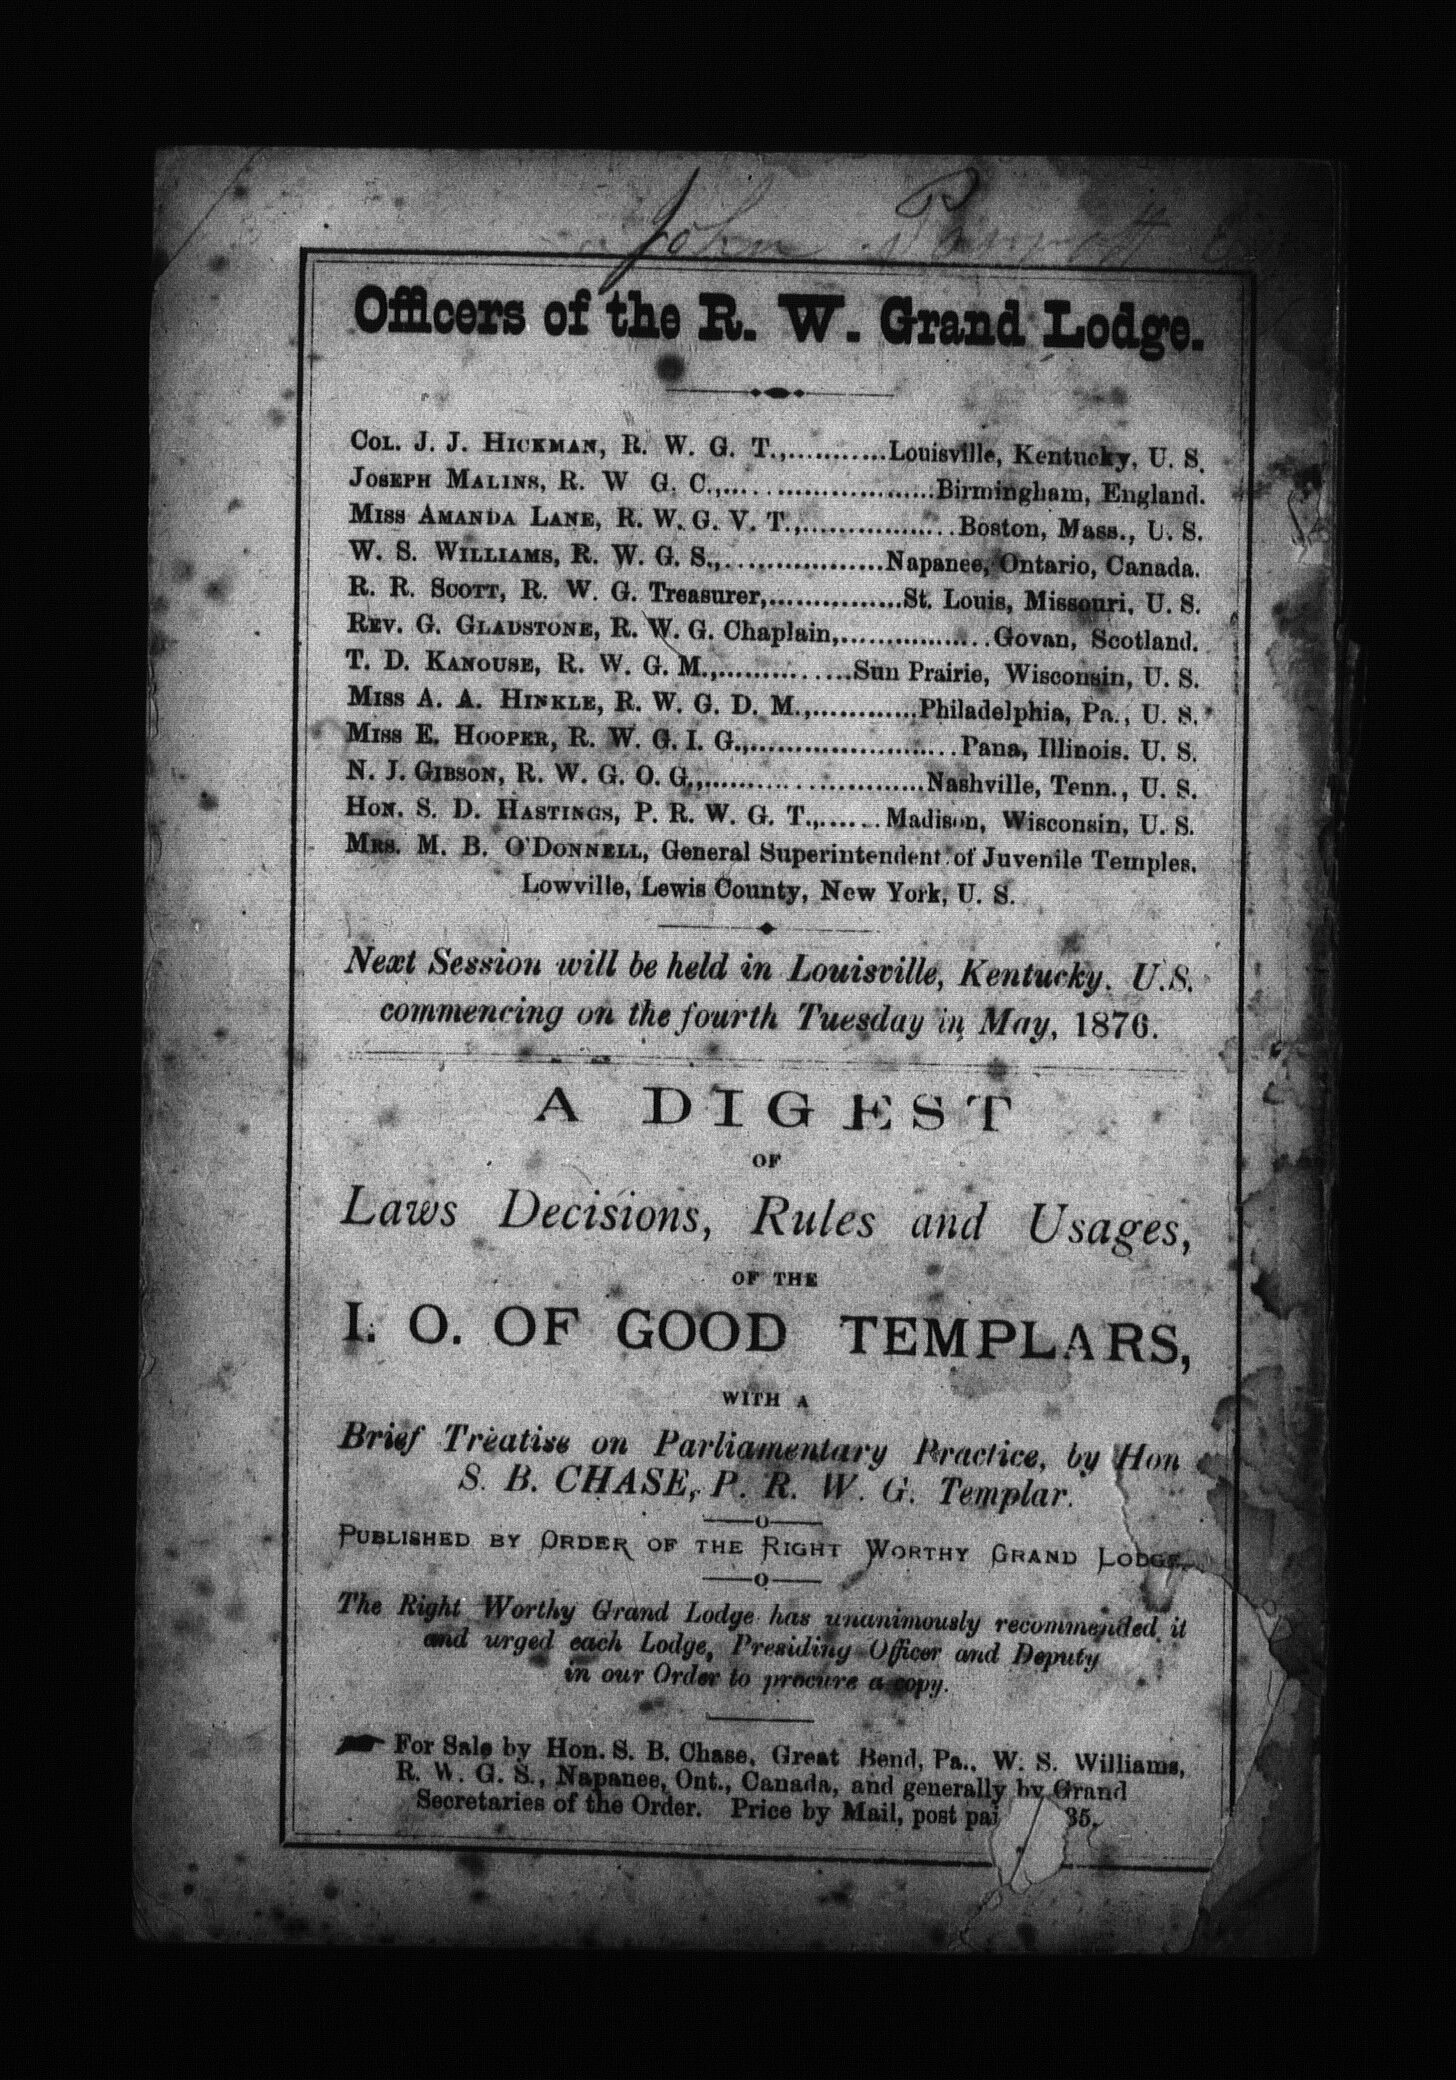 John
Officers of the R. W. Grand Lodge.
COL. J. J. HICKMAN, R. W. G. T.,...........Louisville, Kentucky, U. S.
JOSEPH MALINS, R. W G. C.,........................Birmingham, England.
MISS AMANDA LANE, R. W. G. V. T.,.................Boston, Mass., U. S.
W. S. WILLIAMS, R. W. G. S.,..................Napanee, Ontario, Canada.
R. R. SCOTT, R. W. G. Treasurer,...............St. Louis, Missouri, U. S.
REV. G. GLADSTONE, R. W. G. Chaplain,.................Govan, Scotland.
T. D. KANOUSE, R. W. G. M.,...............Sun Prairie, Wisconsin, U. S.
MISS A. A. HINKLE, R. W. G. D. M.,............Philadelphia, Pa., U. S.
MISS E. HOOPER, R. W. G. I. G.,........................Pana, Illinois. U. S.
N. J. GIBSON, R. W. G. O. G.,.........................Nashville, Tenn., U. S.
HON. S. D. HASTINGS, P. R. W. G. T.,......Madison, Wisconsin, U. S.
MRS. M. B. O'DONNELL, General Superintendent of Juvenile Temples,
Lowville, Lewis County, New York, U. S.
Next Session will be held in Louisville, Kentucky. U.S.
commencing on the fourth Tuesday in May, 1876.
A DIGEST
OF
Laws Decisions, Rules and Usages,
OF THE
I. O. OF GOOD TEMPLARS,
WITH A
Brief Treatise on Parliamentary Practice, by Hon
S. B. CHASE, P. R. W. G. Templar.
O
PUBLISHED BY ORDER OF THE RIGHT WORTHY GRAND LODGE.
O
The Right Worthy Grand Lodge has unanimously recommended it
and urged each Lodge, Presiding Officer and Deputy
in our Order to procure a copy.
For Sale by Hon. S. B. Chase, Great Bend, Pa., W. S. Williams,
R. W. G. S., Napanee, Ont., Canada, and generally by Grand
Secretaries of the Order. Price by Mail, post pai 35.